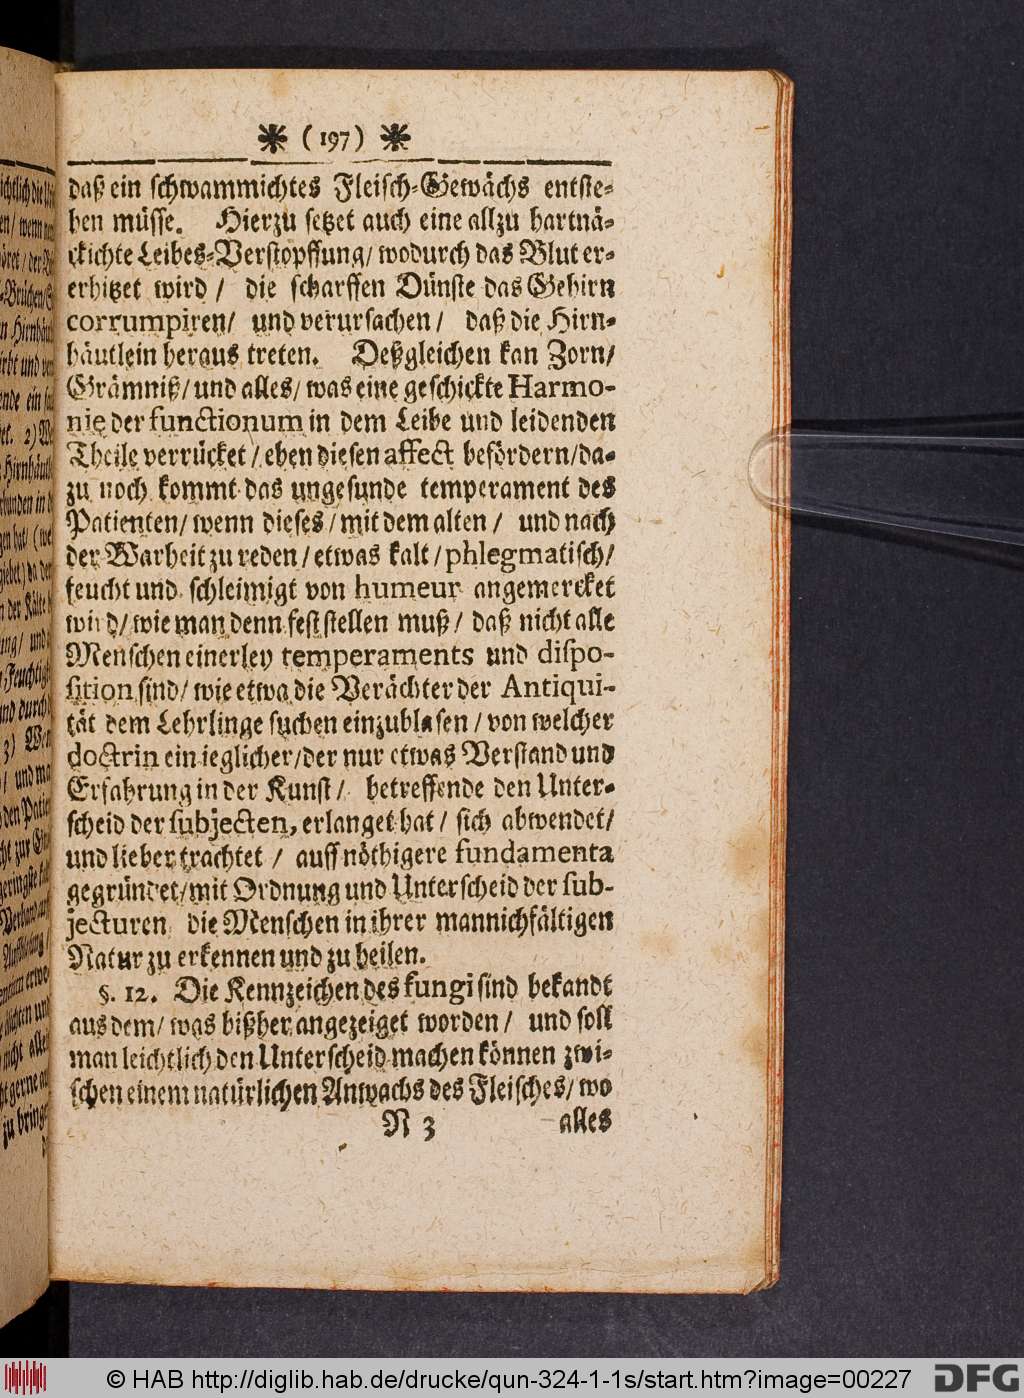 ✻ (197) ✻
daß ein schwammichtes Fleisch-Gewächs entste-
hen müsse. Hierzu setzet auch eine allzu hartnä-
ckichte Leibes-Verstopffung/ wodurch das Blut er-
erhitzet wird / die scharffen Dünste das Gehirn
corrumpiren/ und verursachen / daß die Hirn-
häutlein heraus treten. Deßgleichen kan Zorn/
Grämniß/ und alles/ was eine geschickte Harmo-
nie der functionum in dem Leibe und leidenden
Theile verrücket / eben diesen affect befördern/ da-
zu noch kommt das ungesunde temperament des
Patienten/ wenn dieses / mit dem alten / und nach
der Warheit zu reden / etwas kalt / phlegmatisch/
feucht und schleimigt von humeur angemercket
wird/ wie man denn fest stellen muß / daß nicht alle
Menschen einerley temperaments und dispo-
sition sind/ wie etwa die Verächter der Antiqui-
tät dem Lehrlinge suchen einzublasen / von welcher
doctrin ein ieglicher/ der nur etwas Verstand und
Erfahrung in der Kunst / betreffende den Unter-
scheid der subjecten, erlanget hat / sich abwendet/
und lieber trachtet / auff nöthigere fundamenta
gegründet/ mit Ordnung und Unterscheid der sub-
jecturen die Menschen in ihrer mannichfältigen
Natur zu erkennen und zu heilen.
§. 12. Die Kennzeichen des fungi sind bekandt
aus dem/ was bißher angezeiget worden / und soll
man leichtlich den Unterscheid machen können zwi-
schen einem natürlichen Anwachs des Fleisches/ wo
N 3 alles
© HAB http://diglib.hab.de/drucke/qun-324-1-1s/start.htm?image=00227
DFG